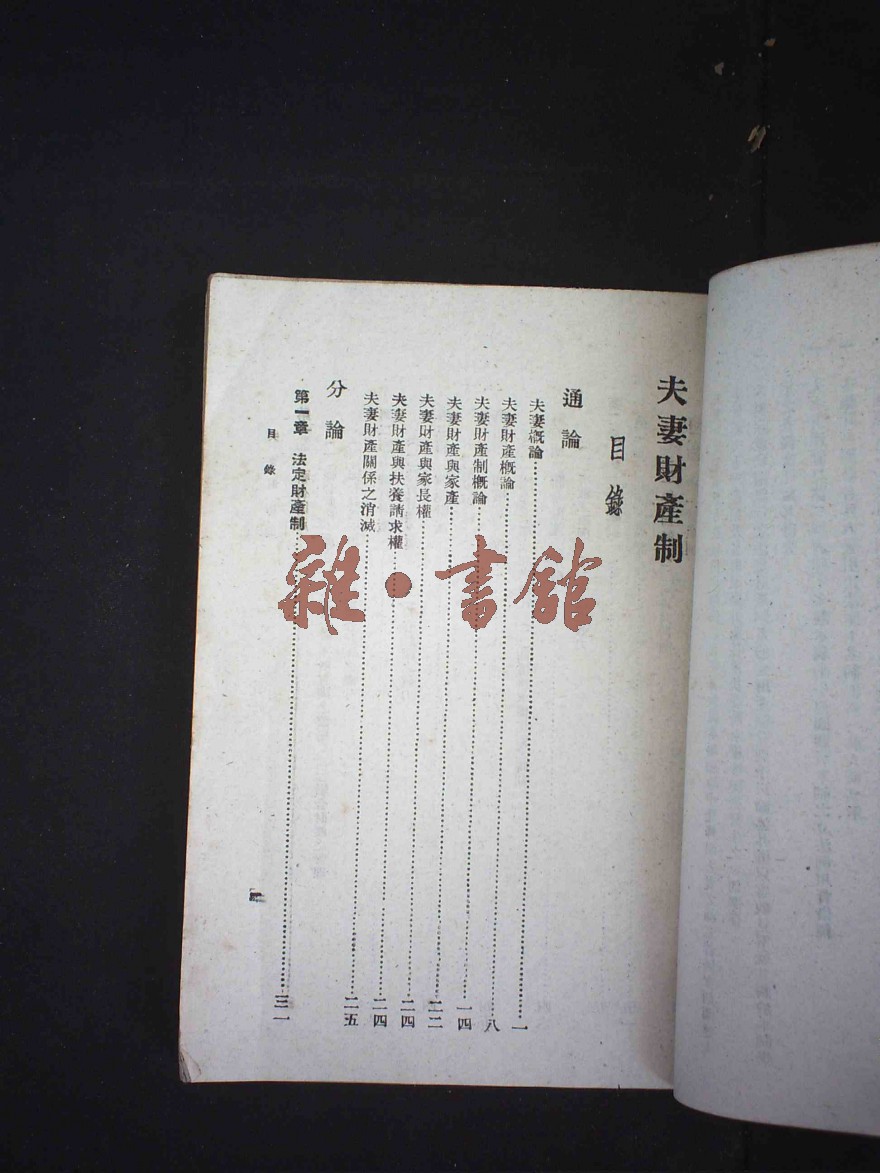 夫妻財產制
目錄
通論
夫妻概論……一
夫妻財產概論……八
夫妻財產制概論……一四
夫妻財產與家產……二二
夫妻財產與家長權……二四
夫妻財產與扶養請求權……二四
夫妻財產關係之消滅……二五
分論
第一章 法定財產制……三一
目錄
雜•書館